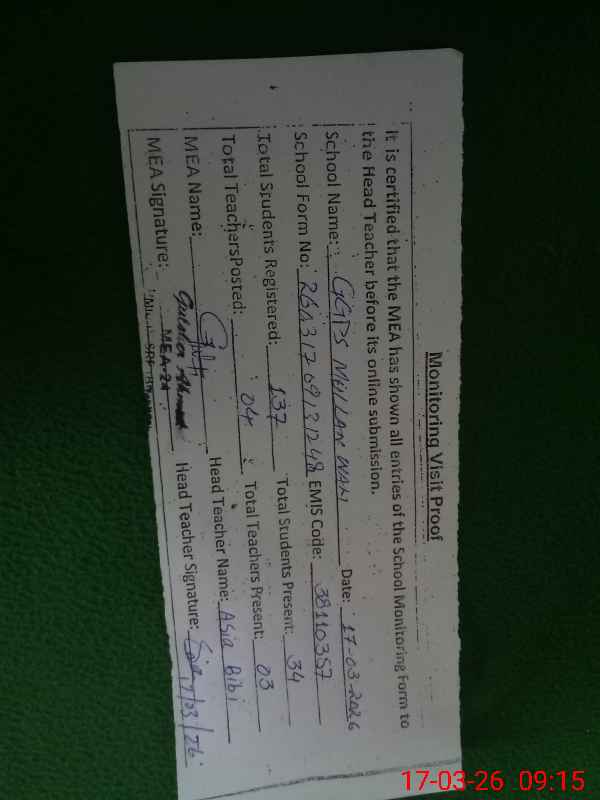 Monitoring Visit Proof
It is certified that the MEA has shown all entries of the School Monitoring Form to
the Head Teacher before its online submission.
School Name: GGPS MEILLAN WALI Date: 17-03-2026
School Form No: EMIS Code: 38110357
Total Students Registered: 137 Total Students Present: 34
Total TeachersPosted: 04 Total Teachers Present: 03
MEA Name: Head Teacher Name: Asia Bibi
MEA Signature: Head Teacher Signature: 17/03/26
Ahmad
MEA-24
17-03-26 09:15